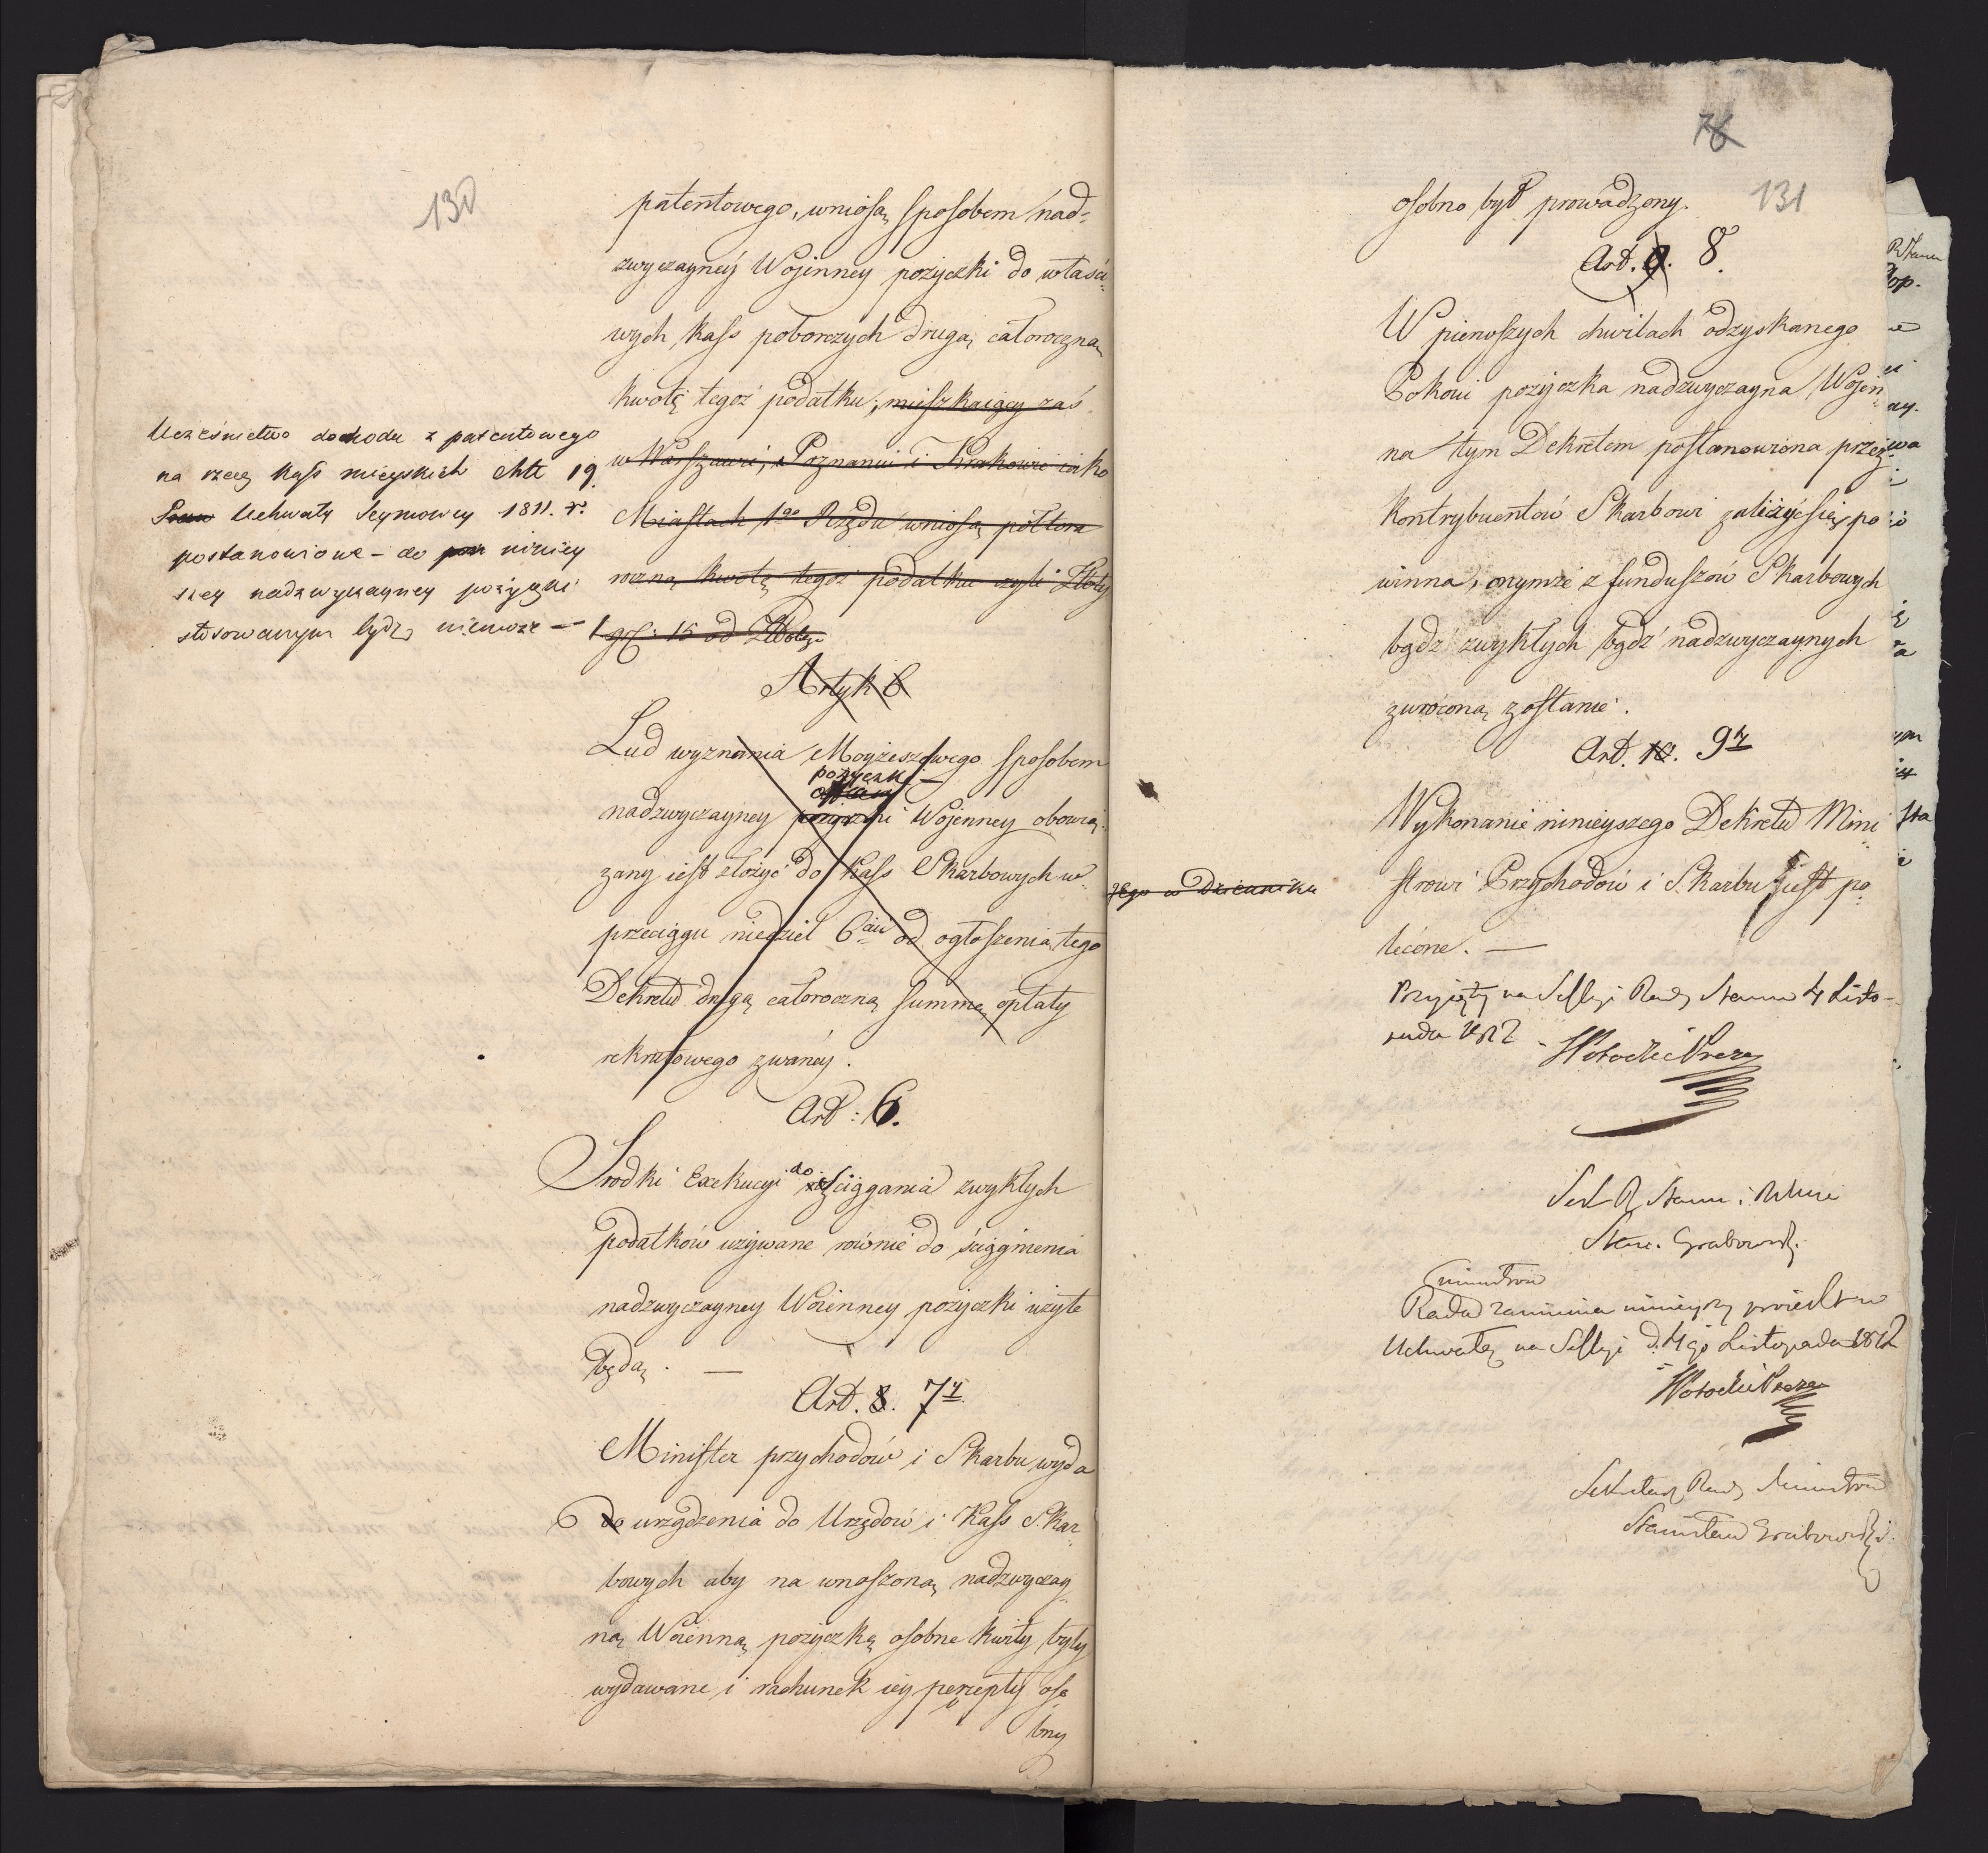 130
patentowego, wniosą sposobem nad-
zwyczayney Wojenney pożyczki do właści-
wych kass poborczych drugą całoroczną
kwotę tegoż podatku, mieszkaiący zaś
w Warszawie, Poznaniu i Krakowie iako
Miastach 1go Rzędu wniosą półtora
roczną kwotę tegoż podatku czyli Złoty
1 gr: 15 od Złotego
Uczesnictwo dochodu z patentowego
na rzecz kass mieyskich Att 19
Praw Uchwały Seymowey 1811. r.
postanowione - do niniey
szey nadzwyczayney pożyczki
stosowanym bydź niemoże —
Artyk 6
Lud wyznania Moyżeszowego sposobem
pożyczki —
nadzwyczayney pożyczki Wojenney obowią-
zany iest złożyć do Kass Skarbowych w
przeciągu niedziel 6ciu od ogłoszenia tego
Dekretu drugą całoroczną summę opłaty
rekrutowego zwaney.
Art: 6.
Srodki Exekucyi do ściągania zwykłych
podatków używane równie do ściągnienia
nadzwyczayney Woienney pożyczki użyte
będą. —
Art. 8. 7y
Minister przychodów i Skarbu wyda
do urządzenia do Urzędów i Kass Skar-
bowych aby na wnoszoną nadzwyczay-
ną Woienną pożyczkę osobne kwity były
wydawane i rachunek iey percepty oso
bny
78
131
osobno był prowadzony.
Art. 9. 8.
W pierwszych chwilach odzyskanego
Pokoiu pożyczka nadzwyczayna Wojen-
na tym Dekretem postanowiona przez
Kontrybuentów Skarbowi zaliczyć się po
winna, onymże z funduszów Skarbowych
bądź zwykłych bądź nadzwyczaynych
zwróconą zostanie.
Art. 10. 9y
Wykonanie ninieyszego Dekretu Mini-
strowi Przychodów i Skarbu iest po-
lecone. —
jego w Dzienniku
Przyięty na Sessyi Rady Stanu 4 Listo-
pada 1812
Sekr R Stanu i
Stan. Grabowski.
Ministrów
Rada zamienia ninieyszy proiekt w
Uchwałę na Sessyi d. 4go Listopada 1812
Sekretarz Rady Ministrów
Stanisław Grabowski